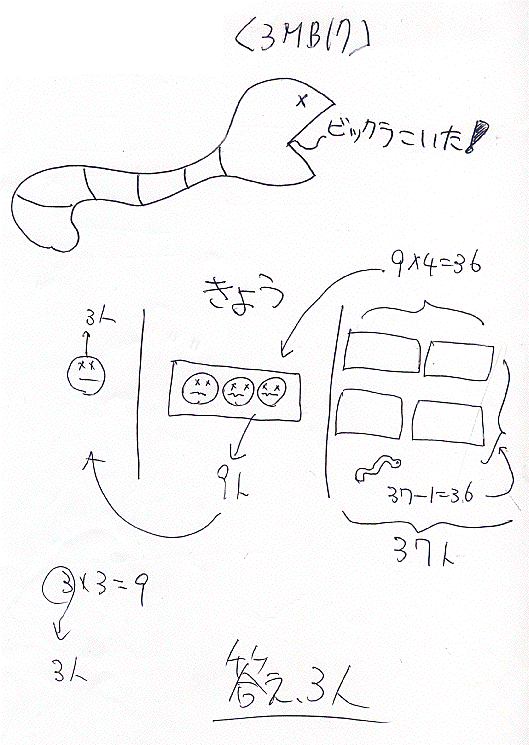 〈3MB17〉
ビックラこいた!
9×4=36
きょう
3人
9人
37-1=36
37人
3×3=9
3人
答え、3人